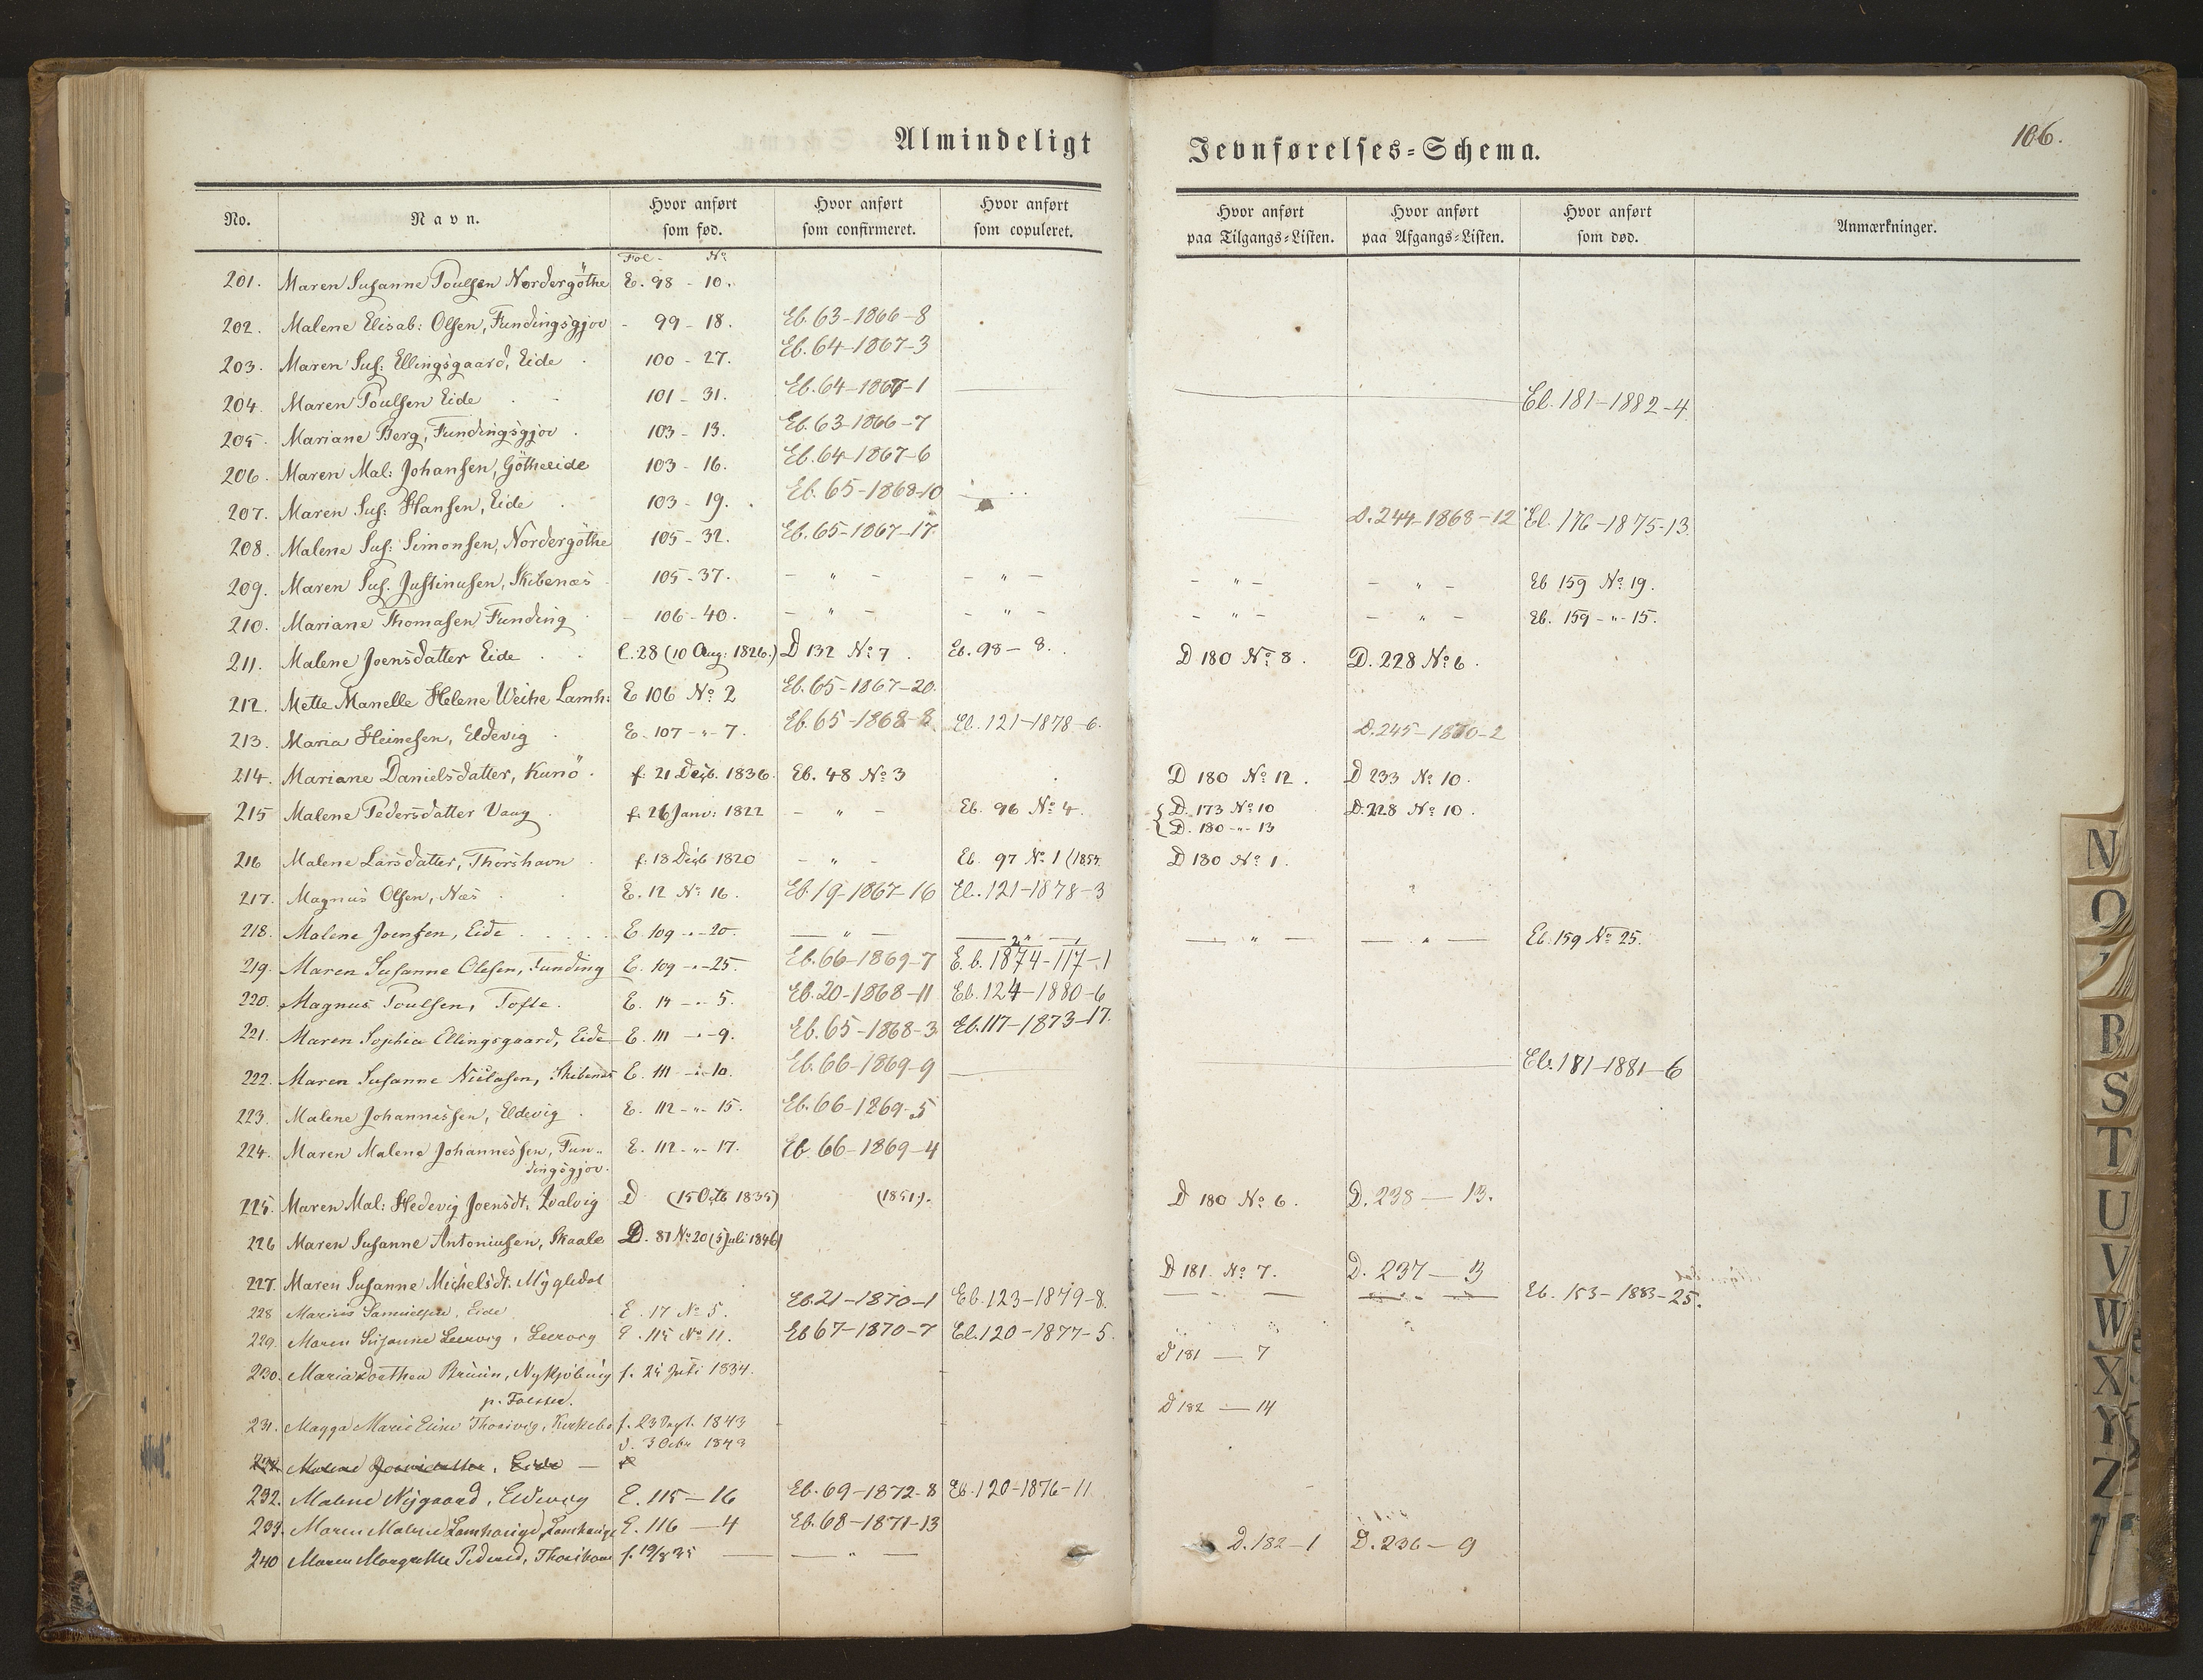 Almindeligt Jevnførelses-Schema.
106.
No. Navn. Hvor anført som fød. Hvor anført som confirmeret. Hvor anført som copuleret. Hvor anført paa Tilgangs-Listen. Hvor anført paa Afgangs-Listen. Hvor anført som død. Anmærkninger.
Fol - No
201. Maren Susanne Poulsen Nordergöthe E. 98 - 10.
202. Malene Elisab: Olsen, Fundingsgjov - 99 - 18. Eb. 63-1866-8
203. Maren Sus: Ellingsgaard, Eide 100 - 27. Eb. 64-1867-3
204. Maren Poulsen Eide 101 - 31. Eb. 64-1867-1 — Eb. 181-1882-4
205. Mariane Berg, Fundingsgjov 103 - 13. Eb. 63-1866-7
206. Maren Mal: Johansen, Götheeide 103 - 16. Eb. 64-1867-6
207. Maren Sus: Hansen, Eide 103 - 19. Eb. 65-1868-10 D. 244-1868-12 Eb. 176-1875-13.
208. Malene Sus: Simonsen, Nordergöthe 105 - 32. Eb. 65-1867-17.
209. Maren Sus. Justinusen, Skibenæs 105 - 37. - " - - " - - " - - " - Eb 159 No 19.
210. Mariane Thomasen Funding - 106 - 40. - " - - " - - " - - " - Eb. 159 - " - 15.
211. Malene Joensdatter Eide C. 28 (10 Aug: 1826.) D 132 No 7. Eb. 98 - 8. D 180 No 8. D. 228 No 6.
212. Mette Manelle Helene Weihe Lamh: E 106 No 2 Eb. 65-1867-20.
213. Maria Heinesen, Eldevig E. 107 - " - 7. Eb. 65-1868-8 Eb. 121-1878-6. D. 245-1870-2
214. Mariane Danielsdatter, Kunö f. 21 Decb. 1836. Eb. 48 No 3 D 180 No 12. D 233 No 10.
215 Malene Pedersdatter Vaag f. 26 Janv: 1822 - " - Eb. 96 No 4. { D. 173 No 10 D. 228 No 10.
{ D. 180 - " - 13
216 Malene Larsdatter, Thorshavn f. 18 Decb 1820 - " - Eb. 97 No 1 (1854. D 180 No 1.
217. Magnus Olsen, Næs E. 12 No 16. Eb. 19-1867-16 Eb. 121-1878-3
218. Malene Joensen, Eide E. 109 - " - 20. — " — — " — — " — — " — Eb. 159 No 25.
219. Maren Susanne Olesen, Funding E. 109 - " - 25. Eb. 66-1869-7 E. b. 1874-117-1
220. Magnus Poulsen, Tofte. E. 14 - " - 5. Eb. 20-1868-11 Eb. 124-1880-6
221. Maren Sophia Ellingsgaard, Eide E. 111 - " - 9. Eb. 65-1868-3 Eb. 117-1873-17.
222. Maren Susanne Niclasen, Skibenæs E. 111 - " - 10. Eb. 66-1869-9 — Eb. 181-1881-6
223. Malene Johannessen, Eldevig E. 112 - " - 15. Eb. 66-1869-5
224. Maren Malene Johannessen, Fun- E. 112 - " - 17. Eb. 66-1869-4
dingsgjov.
225. Maren Mal: Hedevig Joensdt: Qvalvig D (15 Octb 1835) (1851.). D 180 No 6. D. 238 — 13.
226 Maren Susanne Antoniusen, Skaale D. 81 No 20 (5 Juli 1846)
227. Maren Susanne Michelsdt. Mygledal D 181 No 7. D. 237 — 3
228 Marius Samuelsen, Eide E. 17 No 5. Eb. 21-1870-1 Eb. 123-1879-8. Eb. 153-1883-25.
229. Maren Susanne Leervig, Leervig E. 115 No 11. Eb 67-1870-7 Eb. 120-1877-5.
230. Maria Dorthea Bruun, Nykjöbing f. 25 Juli 1834. D 181 — 7
p. Falster.
231. Magga Marie Eline Thorsvig, Kirkebö f. 23 Sept. 1843 D 182 — 14
d. 3 Octbr 1843
Malene Joensdatter, Eide —
232. Malene Nygaard, Eldevig E. 115 — 16 Eb. 69-1872-8 Eb. 120-1876-11
239. Maren Malene Lamhauge, Lamhauge E. 116 — 4 Eb. 68-1871-13
240 Maren Margrethe Peders, Thorshavn f. 19/8 35 — — " — D. 182-1 D. 236 — 9
N
O
R
S
T
U
V
W
X
Y
Z